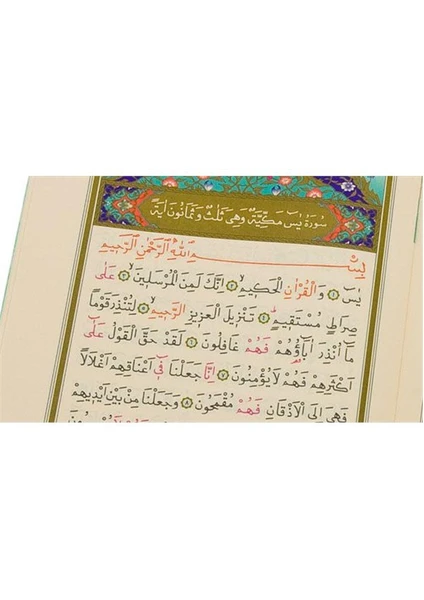 سُورَةُ يٰسٓ مَكِّيَّةٌ وَهِيَ ثَلَثٌ وَثَمَانُونَ اٰيَةً
بِسْمِ اللّٰهِ الرَّحْمٰنِ الرَّحِيمِ
يٰسٓ ﴿١﴾ وَالْقُرْاٰنِ الْحَكِيمِ ﴿٢﴾ اِنَّكَ لَمِنَ الْمُرْسَلِينَ ﴿٣﴾ عَلٰى
صِرَاطٍ مُسْتَقِيمٍ ﴿٤﴾ تَنْزِيلَ الْعَزِيزِ الرَّحِيمِ ﴿٥﴾ لِتُنْذِرَ قَوْمًا
مَٓا اُنْذِرَ اٰبَٓاؤُ۬هُمْ فَهُمْ غَافِلُونَ ﴿٦﴾ لَقَدْ حَقَّ الْقَوْلُ عَلٰٓى
اَكْثَرِهِمْ فَهُمْ لَا يُؤْمِنُونَ ﴿٧﴾ اِنَّا جَعَلْنَا فِٓي اَعْنَاقِهِمْ اَغْلَالًا
فَهِيَ اِلَى الْاَذْقَانِ فَهُمْ مُقْمَحُونَ ﴿٨﴾ وَجَعَلْنَا مِنْ بَيْنِ اَيْدِيهِمْ